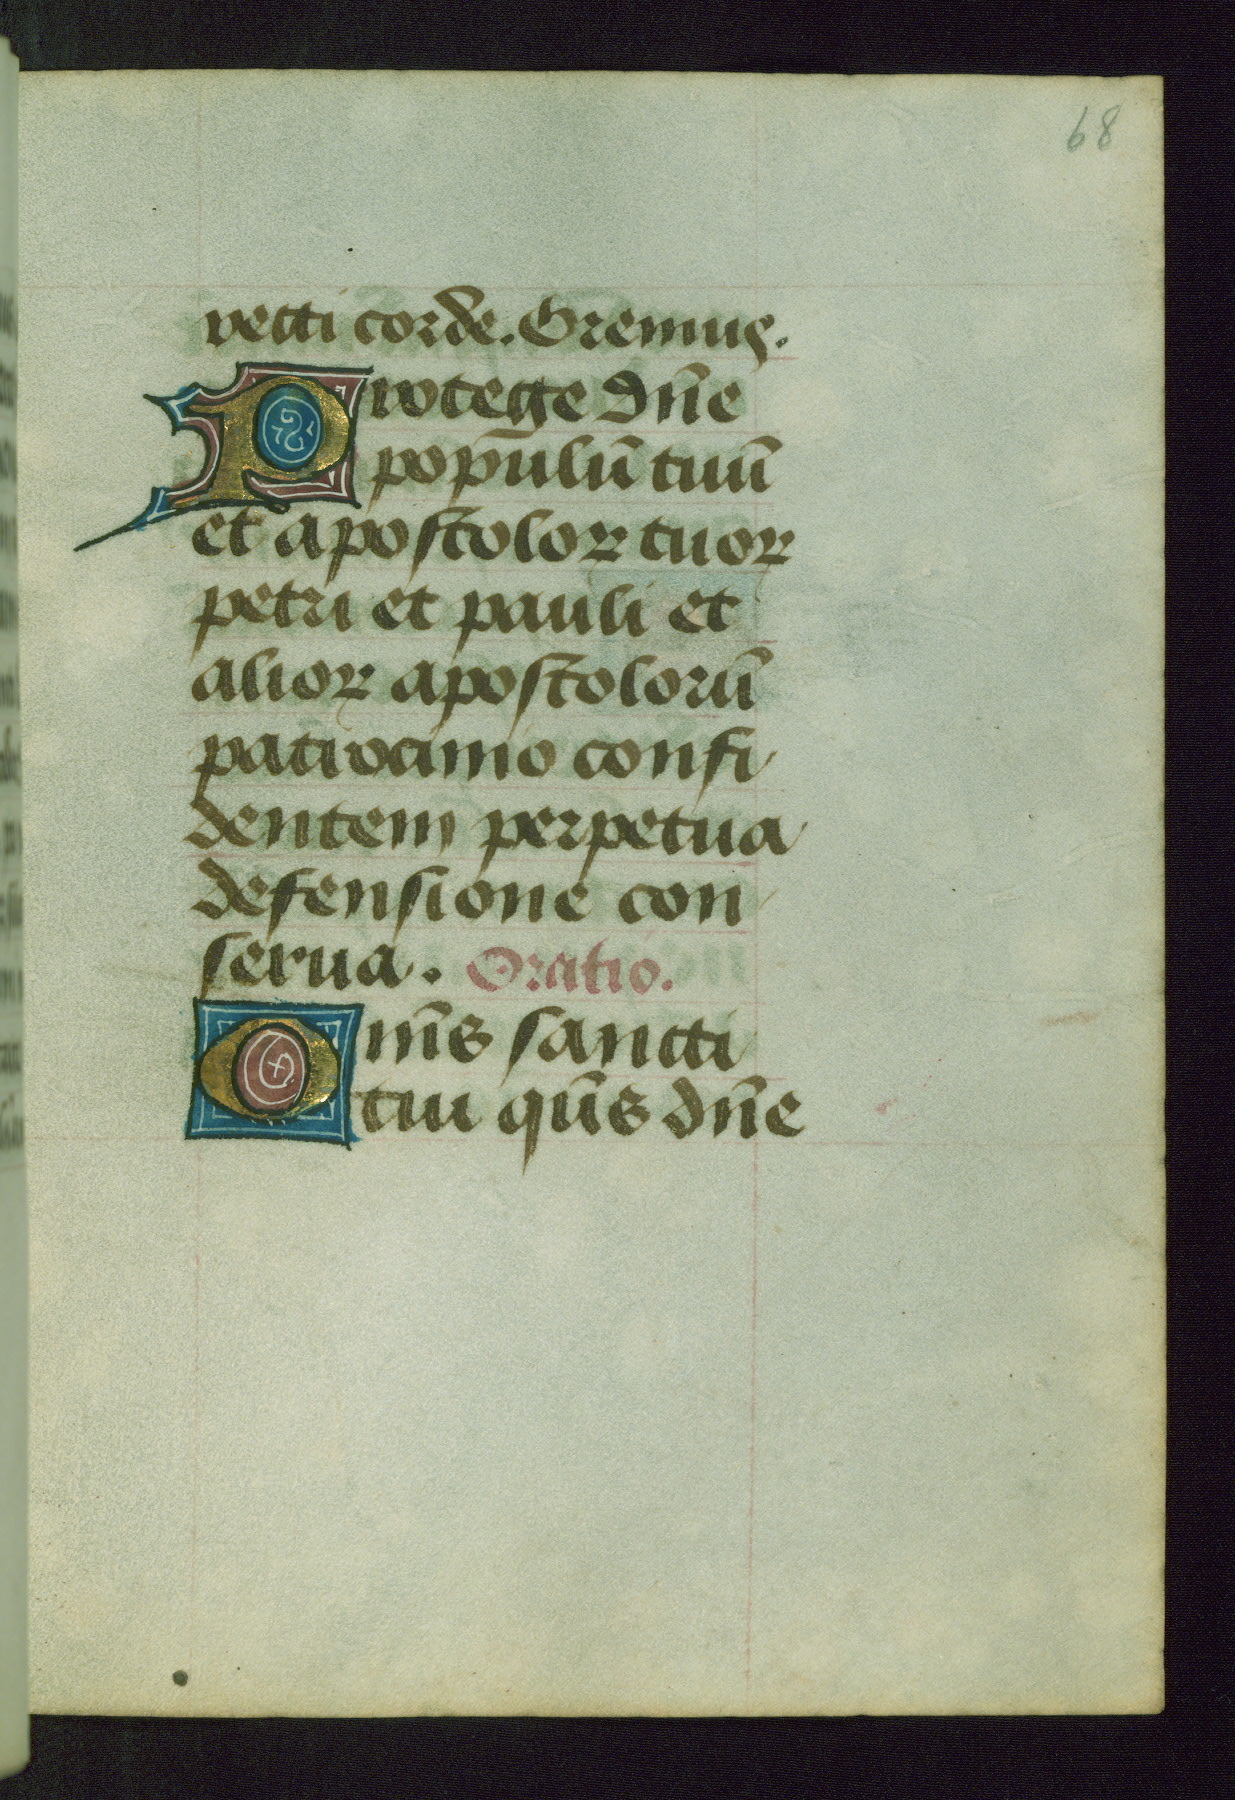 68
recti corde. Oremus.
Protege dn̄e
popūlū tuū
et apostoloꝝ tuoꝝ
petri et pauli et
alioꝝ apostolorū
patrocinio confi
dentem perpetua
defensione con
serua. Oratio.
Om̄s sancti
tui qūs dn̄e